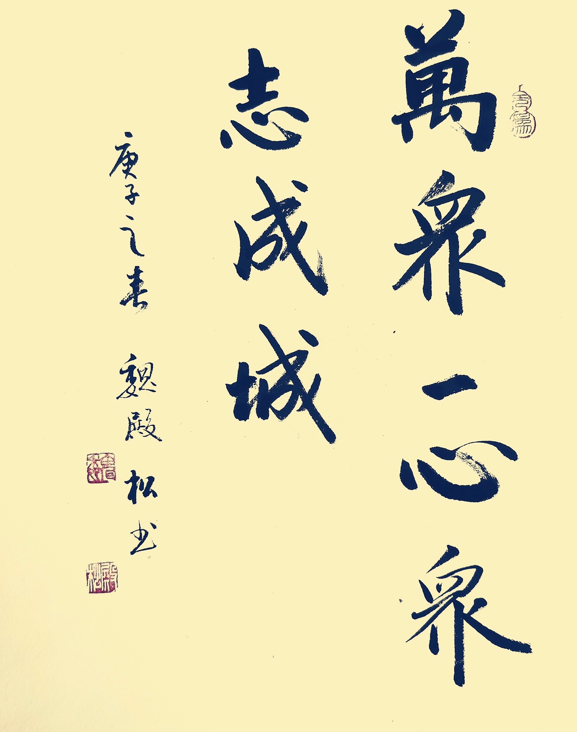 萬眾一心眾
志成城
庚子之春 魏殿松书